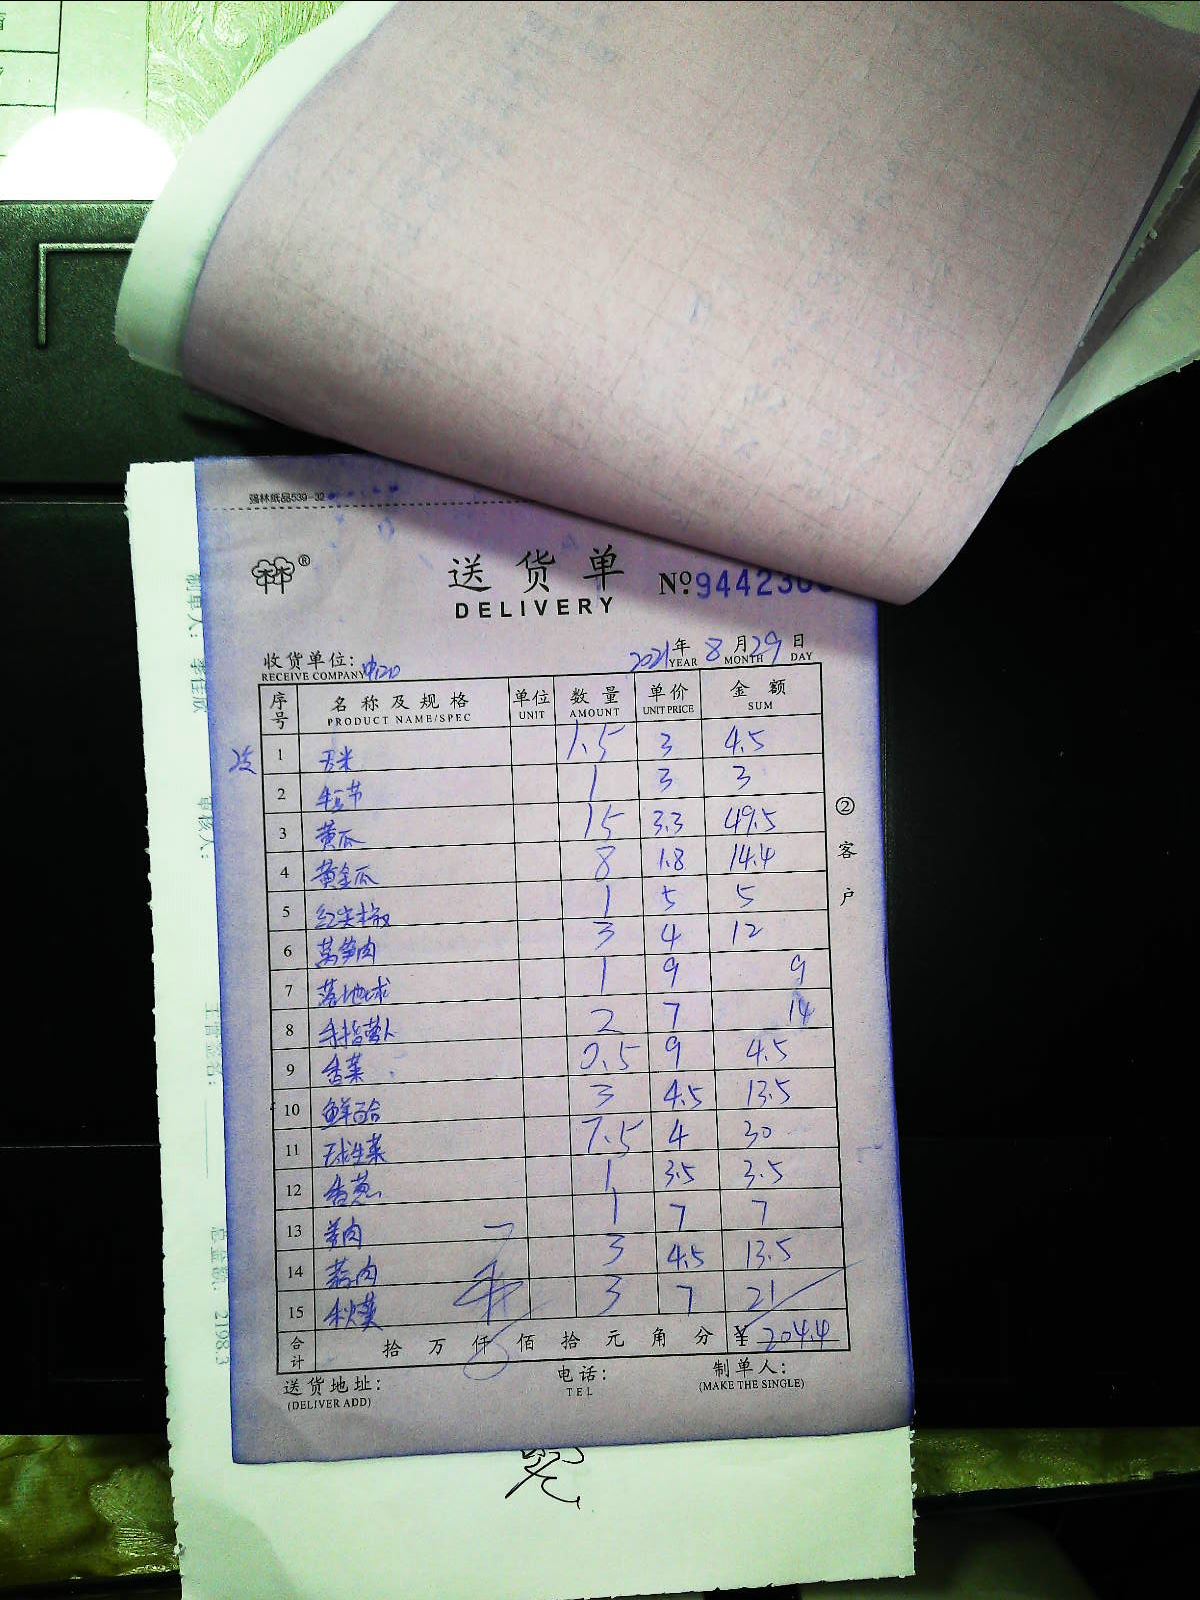 强林纸品539-32
送货单
DELIVERY
№:944230
2021年 8月29日
YEAR MONTH DAY
收货单位:
RECEIVE COMPANY
序号 名称及规格 单位 数量 单价 金额
PRODUCT NAME/SPEC UNIT AMOUNT UNIT PRICE SUM
1 玉米 1.5 3 4.5
2 1 3 3
3 黄瓜 15 3.3 49.5
4 黄金瓜 8 1.8 14.4
5 红尖椒 1 5 5
6 莴笋肉 3 4 12
7 落地球 1 9 9
8 手指萝卜 2 7 14
9 香菜 0.5 9 4.5
10 鲜百合 3 4.5 13.5
11 球生菜 7.5 4 30
12 香葱 1 3.5 3.5
13 姜肉 1 7 7
14 蒜肉 3 4.5 13.5
15 秋葵 3 7 21
合计 拾 万 仟 佰 拾 元 角 分 ¥ 204.4
送货地址: 电话: 制单人:
(DELIVER ADD) TEL (MAKE THE SINGLE)
②客户
制单人:
审核人:
主管签名:
总金额: 2198.3